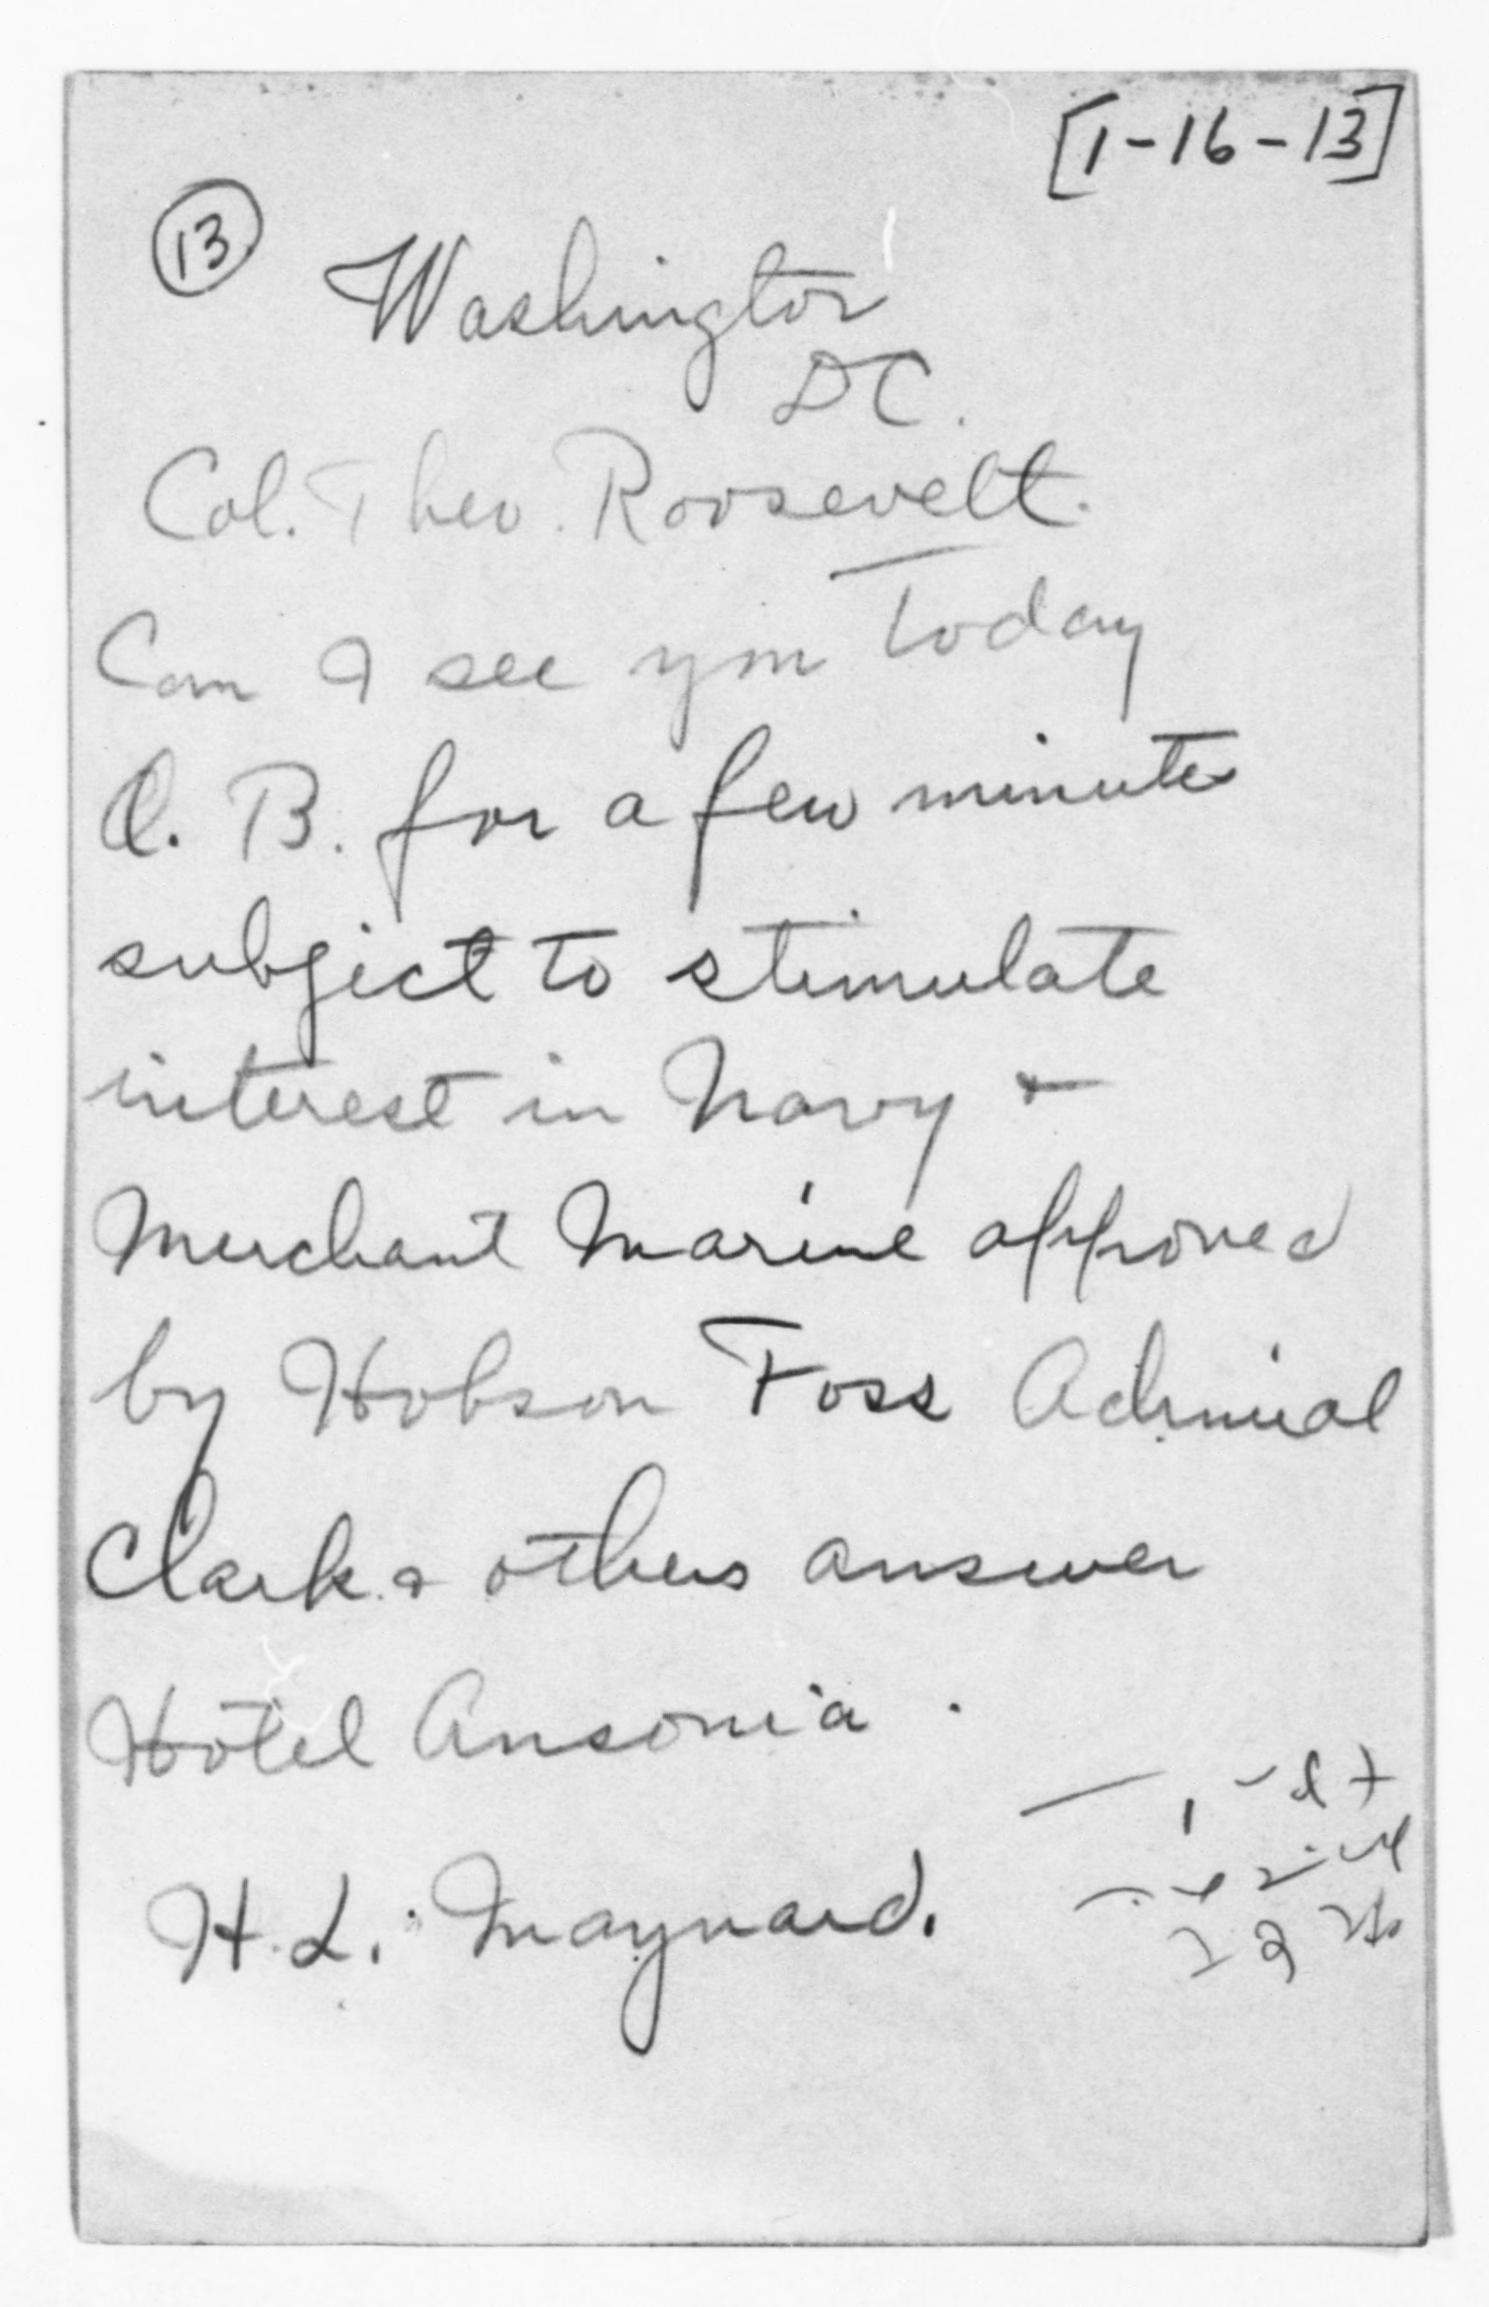 [1-16-13]
13
Washington
DC.
Col. Theo. Roosevelt.
Can I see you today
O. B. for a few minutes
subject to stimulate
interest in Navy &
Merchant Marine approved
by Hobson Foss Admiral
Clark & others answer
Hotel Ansonia.
H. L. Maynard.